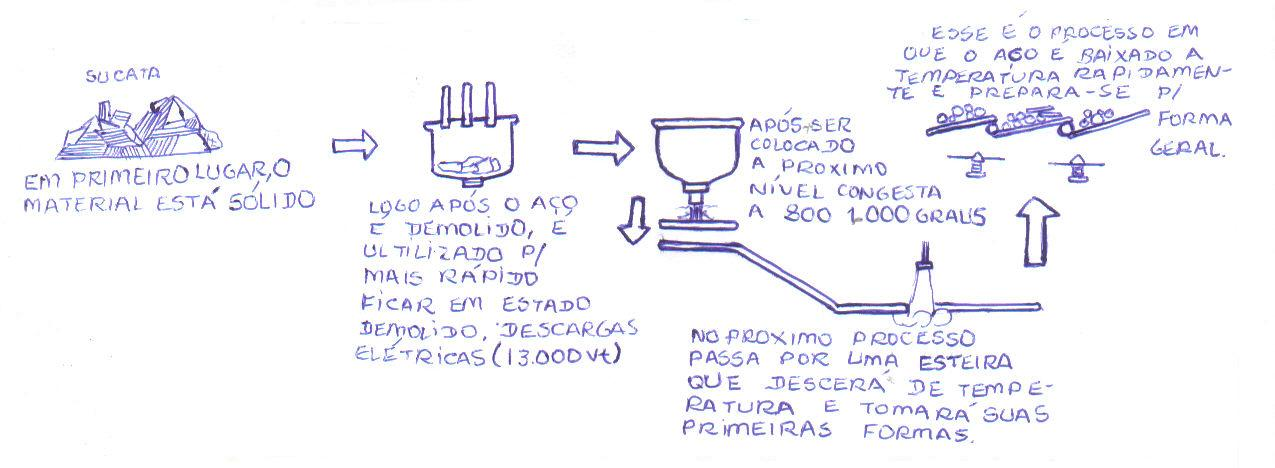 SUCATA
EM PRIMEIRO LUGAR, O
MATERIAL ESTÁ SÓLIDO
LOGO APÓS O AÇO
E DEMOLIDO, E
ULTILIZADO P/
MAIS RÁPIDO
FICAR EM ESTADO
DEMOLIDO, DESCARGAS
ELÉTRICAS (13.000 Vt)
APÓS SER
COLOCADO
A PROXIMO
NÍVEL CONGESTA
A 800 1.000 GRAUS
NO PROXIMO PROCESSO
PASSA POR UMA ESTEIRA
QUE DESCERÁ DE TEMPE-
RATURA E TOMARÁ SUAS
PRIMEIRAS FORMAS.
ESSE É O PROCESSO EM
QUE O AÇO É BAIXADO A
TEMPERATURA RAPIDAMEN-
TE E PREPARA-SE P/
FORMA
GERAL.